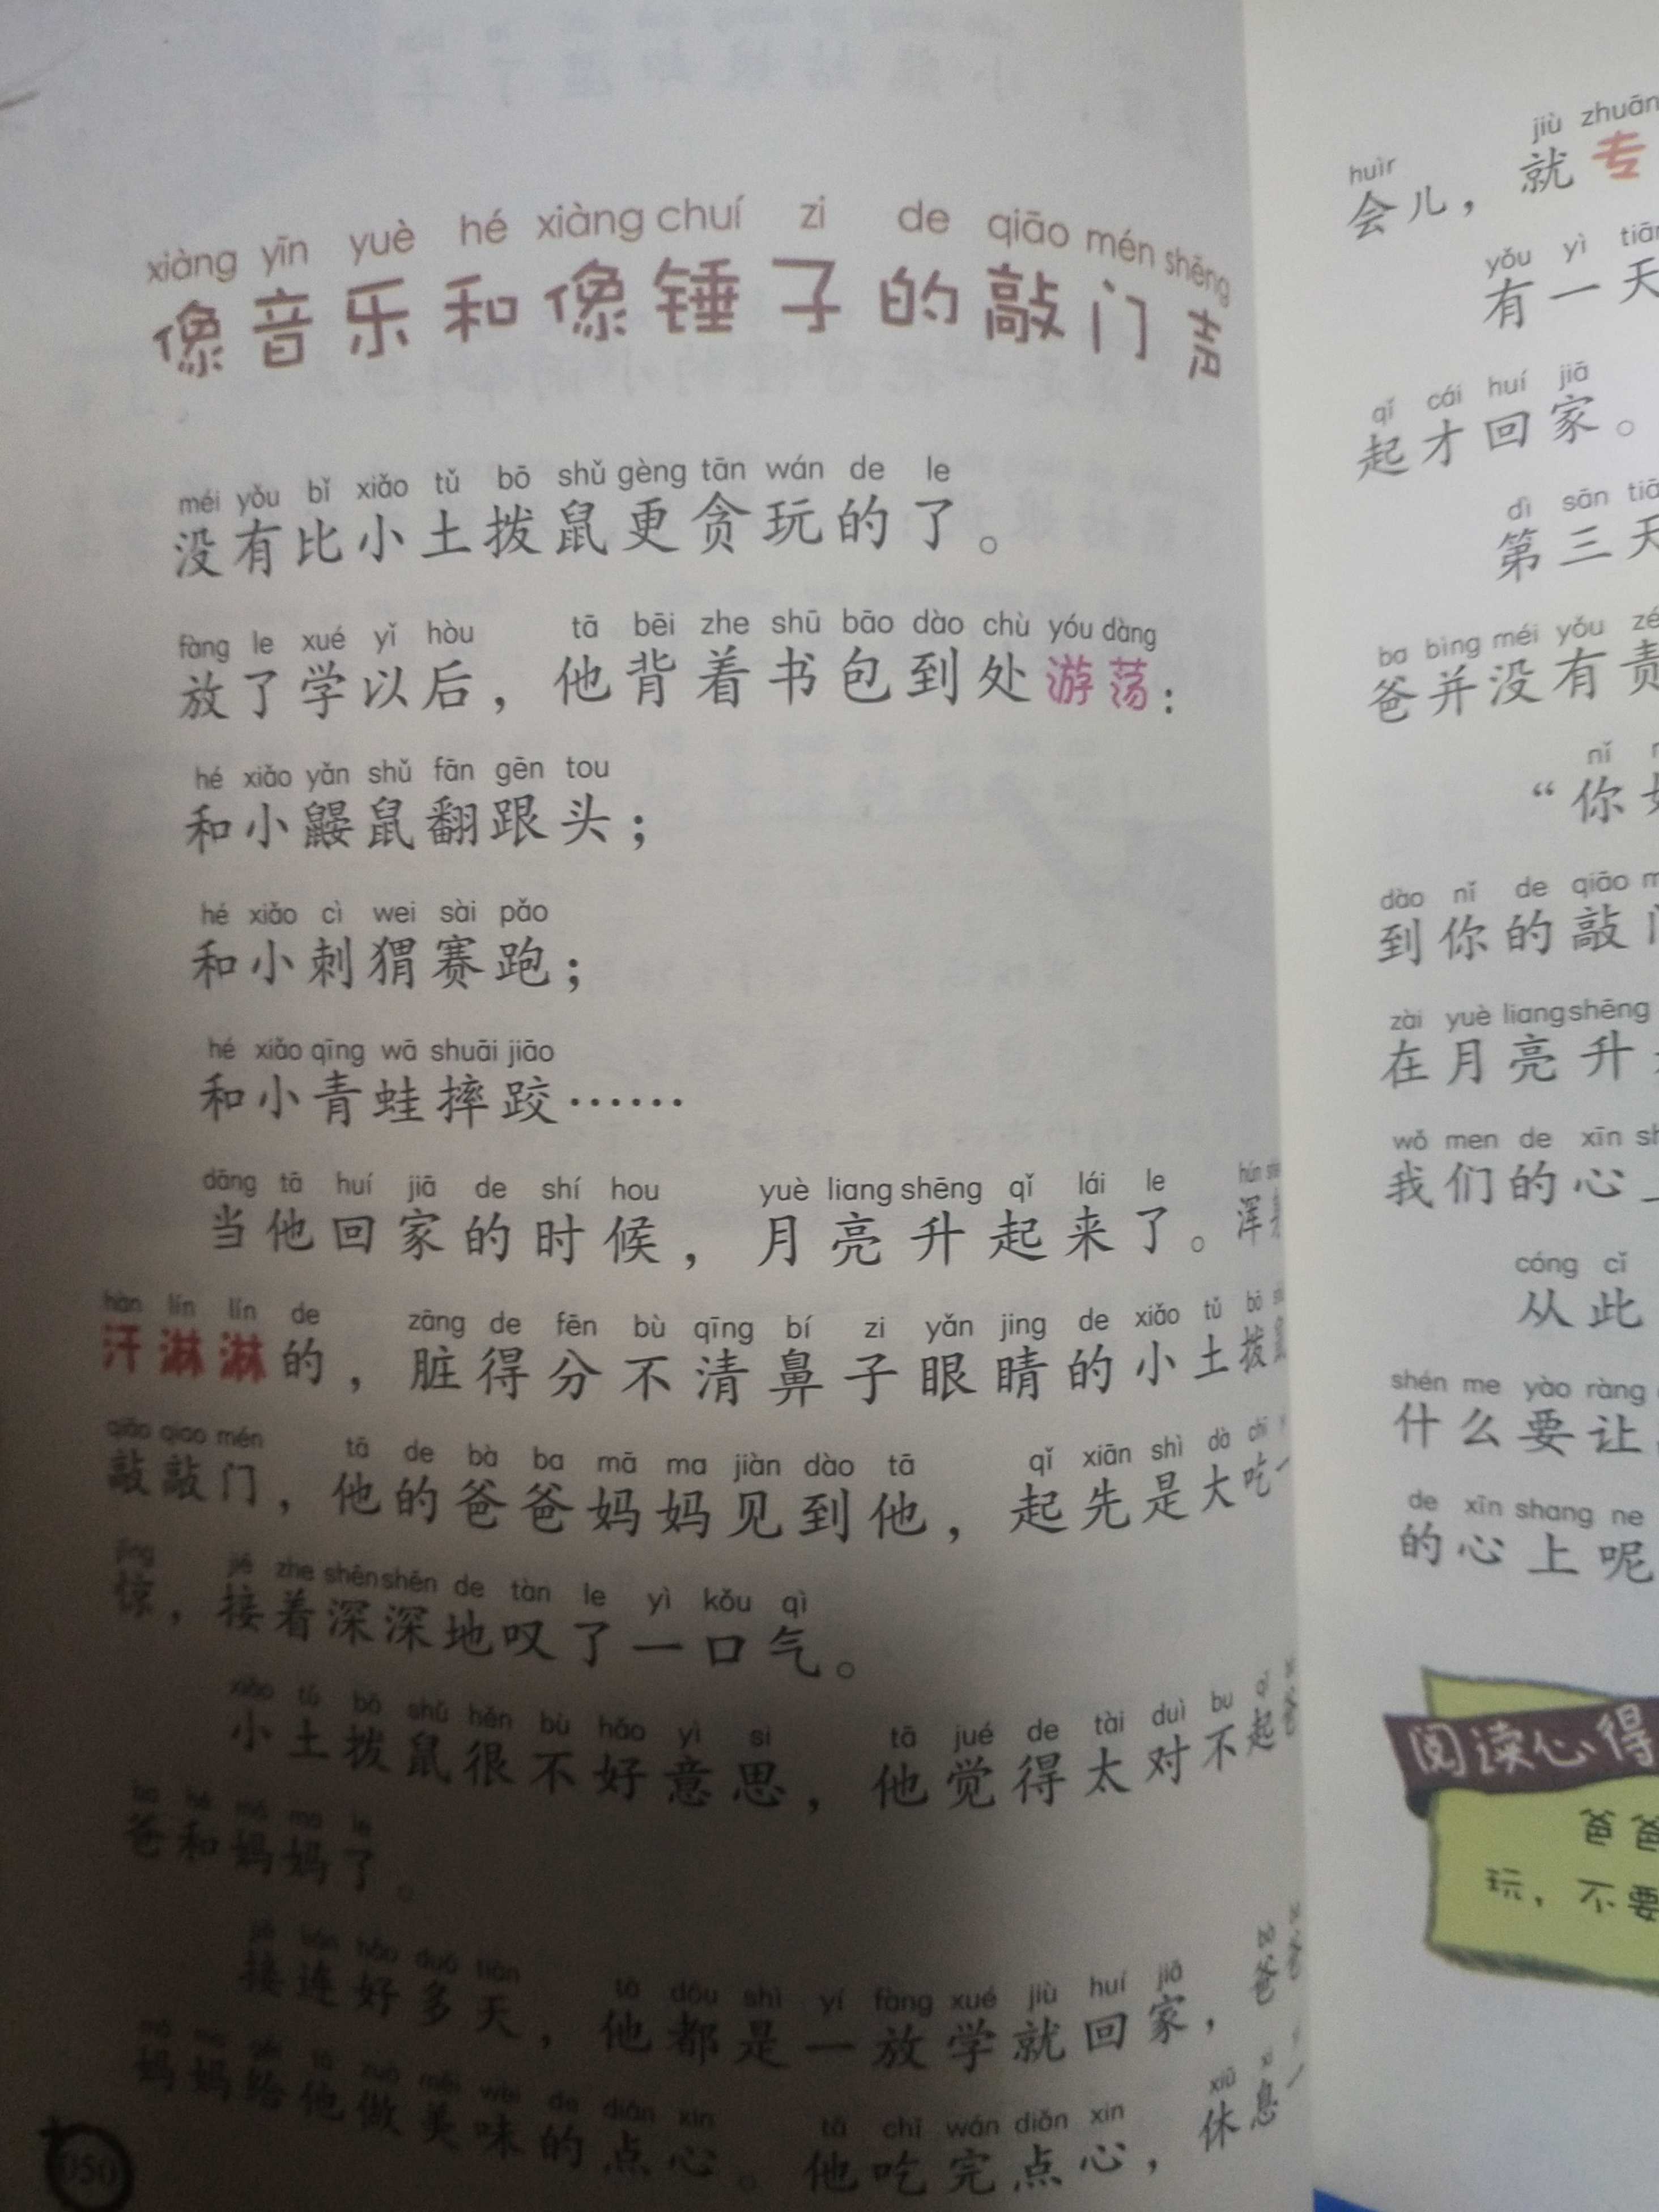 xiàng yīn yuè hé xiàng chuí zi de qiāo mén shēng
像音乐和像锤子的敲门声
méi yǒu bǐ xiǎo tǔ bō shǔ gèng tān wán de le
没有比小土拨鼠更贪玩的了。
fàng le xué yǐ hòu tā bēi zhe shū bāo dào chù yóu dàng
放了学以后，他背着书包到处游荡：
hé xiǎo yǎn shǔ fān gēn tou
和小鼹鼠翻跟头；
hé xiǎo cì wei sài pǎo
和小刺猬赛跑；
hé xiǎo qīng wā shuāi jiāo
和小青蛙摔跤……
dāng tā huí jiā de shí hou yuè liang shēng qǐ lái le hún
当他回家的时候，月亮升起来了。浑身
hàn lín lín de zāng de fēn bù qīng bí zi yǎn jing de xiǎo tǔ bō
汗淋淋的，脏得分不清鼻子眼睛的小土拨鼠
qiāo qiao mén tā de bà ba mā ma jiàn dào tā qǐ xiān shì dà chī
敲敲门，他的爸爸妈妈见到他，起先是大吃一
jīng jiē zhe shēn shēn de tàn le yì kǒu qì
惊，接着深深地叹了一口气。
xiǎo tǔ bō shǔ hěn bù hǎo yì si tā jué de tài duì bu qǐ
小土拨鼠很不好意思，他觉得太对不起爸
ba hé mā ma le
爸和妈妈了。
jiē lián hǎo duō tiān tā dōu shì yí fàng xué jiù huí jiā
接连好多天，他都是一放学就回家，爸爸
mā ma gěi tā zuò měi wèi de diǎn xin tā chī wán diǎn xin xiū
妈妈给他做美味的点心。他吃完点心，休息一
050
huìr jiù zhuān
会儿，就专
yǒu yì tiān
有一天
qǐ cái huí jiā
起才回家。
dì sān tiān
第三天
ba bìng méi yǒu zé
爸并没有责
nǐ
“你
dào nǐ de qiāo
到你的敲
zài yuè liang shēng
在月亮升
wǒ men de xīn
我们的心
cóng cǐ
从此
shén me yào ràng
什么要让
de xīn shang ne
的心上呢
阅读心得
爸爸
玩，不要